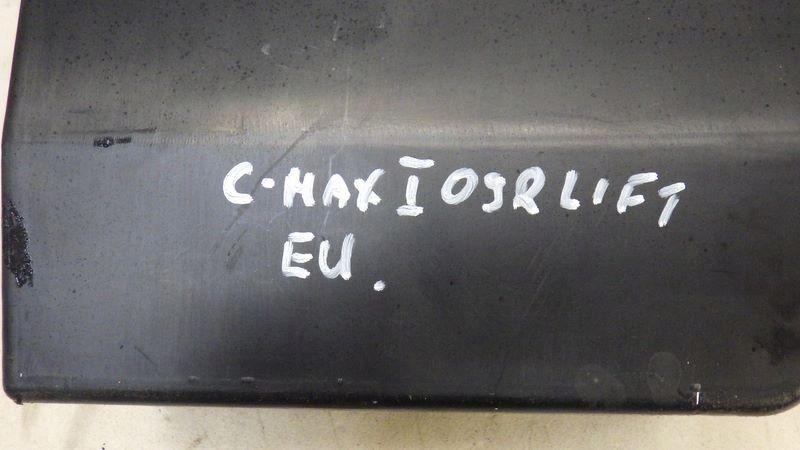 C-MAX I 09R LIFT
EU.